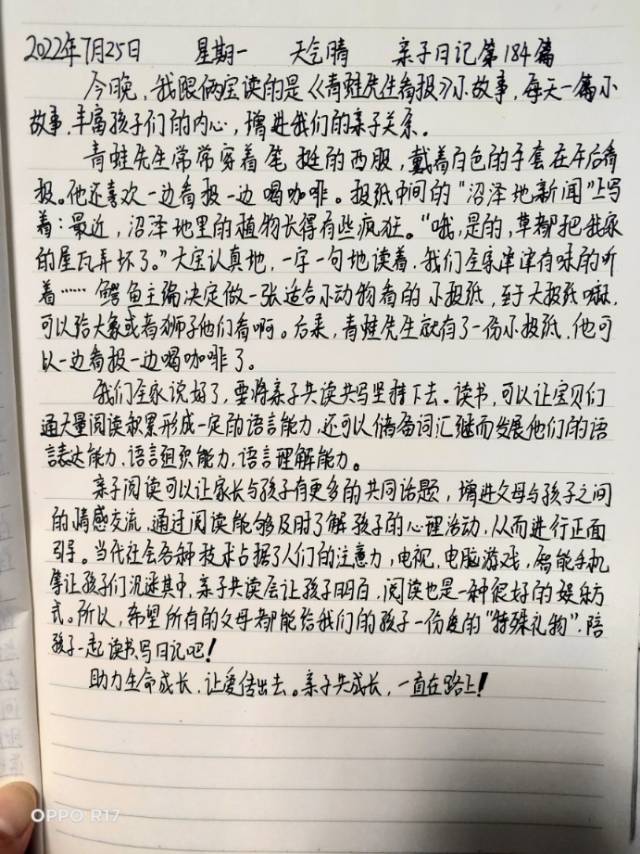 2022年7月25日 星期一 天气晴 亲子日记第184篇
今晚,我跟俩宝读的是《青蛙先生看报》小故事,每天一篇小
故事,丰富孩子们的内心,增进我们的亲子关系。
青蛙先生常常穿着笔挺的西服,戴着白色的手套在午后看
报。他还喜欢一边看报一边喝咖啡。报纸中间的“沼泽地新闻”上写
着:最近,沼泽地里的植物长得有些疯狂。“哦,是的,草都把我家
的屋瓦弄坏了。”大宝认真地,一字一句地读着,我们全家津津有味的听
着……鳄鱼主编决定做一张适合小动物看的小报纸,至于大报纸嘛,
可以给大象或者狮子他们看啊。后来,青蛙先生就有了一份小报纸,他可
以一边看报一边喝咖啡了。
我们全家说好了,要将亲子共读共写坚持下去。读书,可以让宝贝们
通过大量阅读积累形成一定的语言能力,还可以储备词汇继而发展他们的语
言表达能力,语言组织能力,语言理解能力。
亲子阅读可以让家长与孩子有更多的共同话题,增进父母与孩子之间
的情感交流,通过阅读能够及时了解孩子的心理活动,从而进行正面
引导。当代社会各种技术占据了人们的注意力,电视,电脑游戏,智能手机
等让孩子们沉迷其中,亲子共读会让孩子明白,阅读也是一种很好的娱乐方
式。所以,希望所有的父母都能给我们的孩子一份爱的“特殊礼物”,陪
孩子一起读书,写日记吧!
助力生命成长,让爱传出去。亲子共成长,一直在路上!
OPPO R17